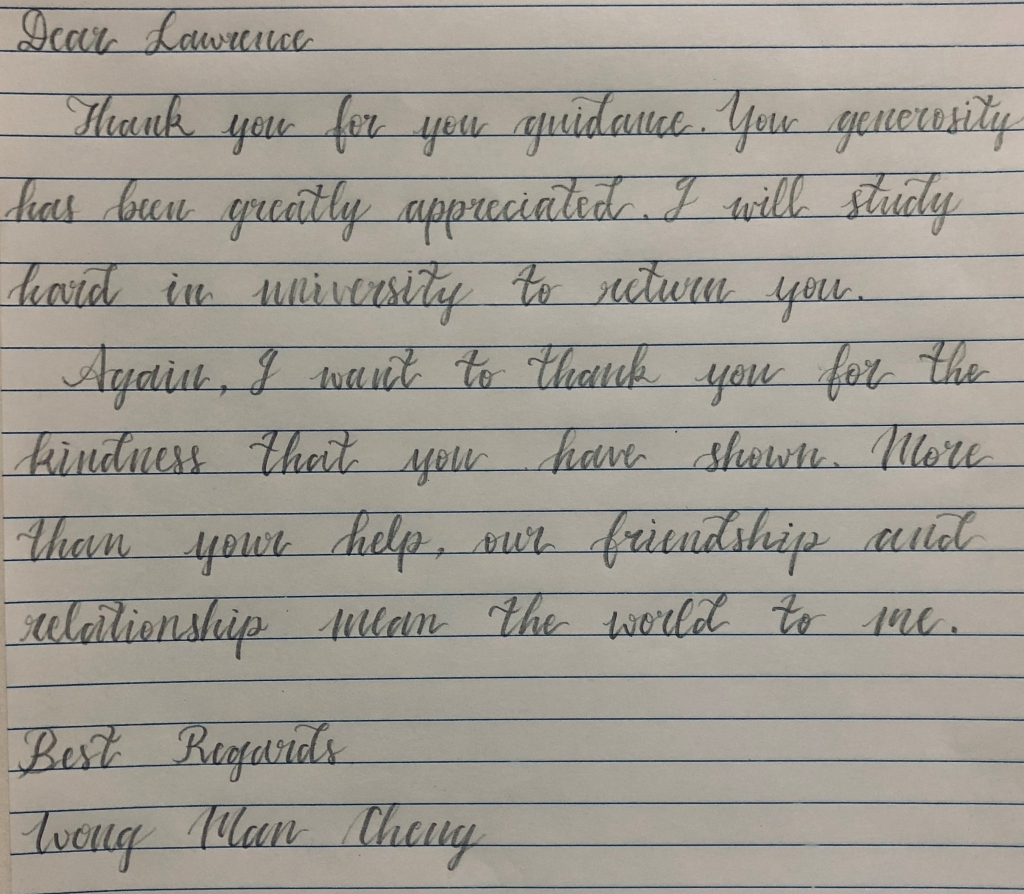 Dear Lawrence
Thank you for you guidance. You generosity
has been greatly appreciated. I will study
hard in university to return you.
Again, I want to thank you for the
kindness that you have shown. More
than your help, our friendship and
relationship mean the world to me.
Best Regards
Wong Man Cheng